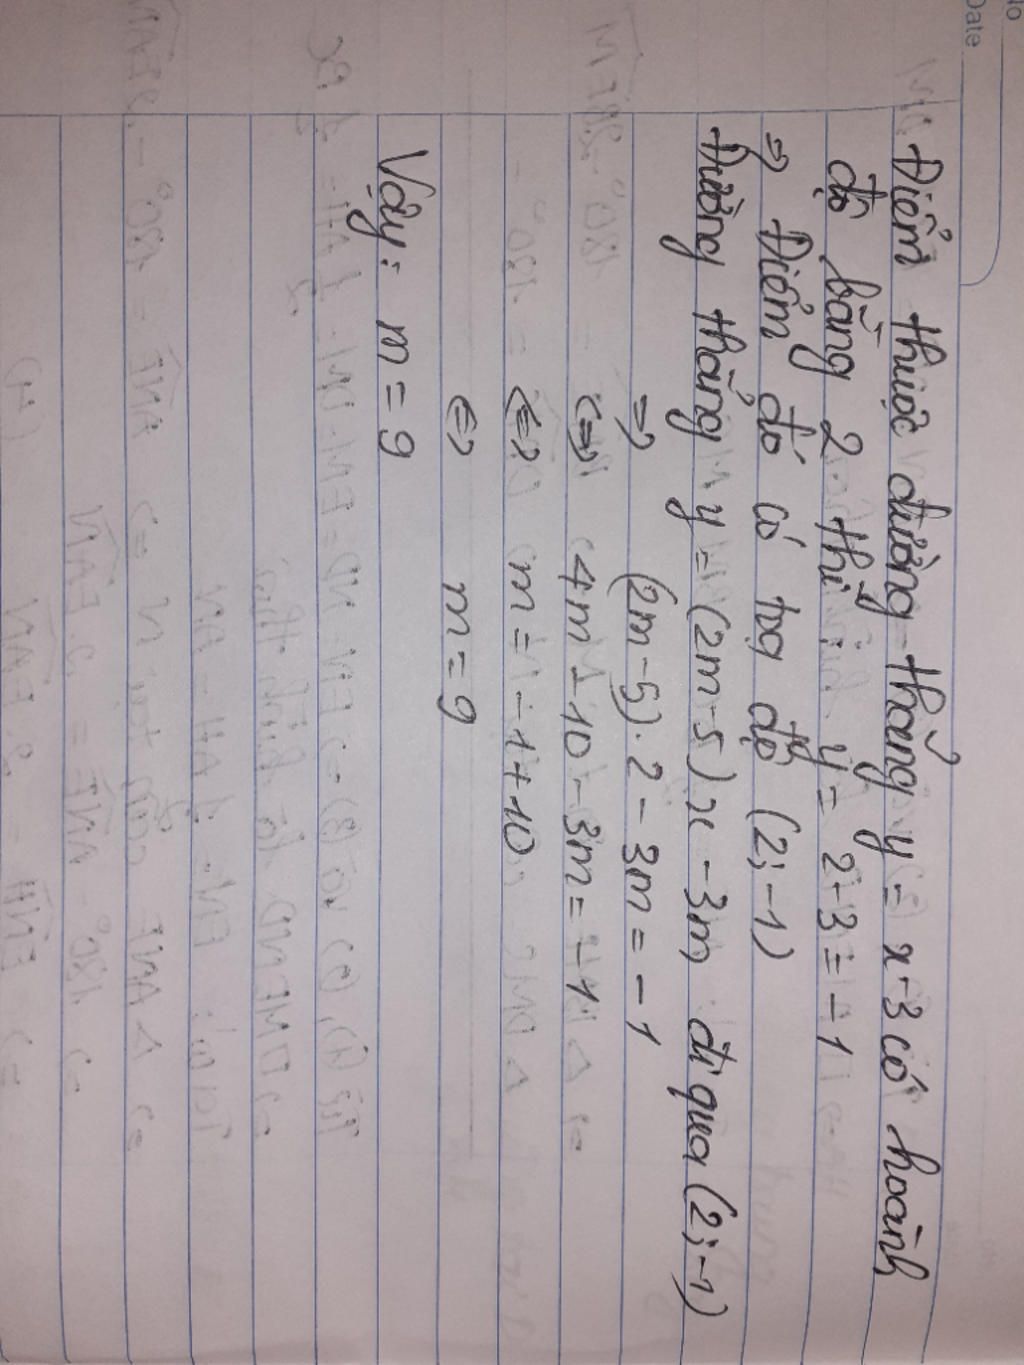 No
Date
Điểm thuộc đường thẳng y = x-3 có hoành
độ bằng 2 thì: y = 2-3 = -1
=> Điểm đó có tọa độ (2;-1)
Đường thẳng y = (2m-5)x -3m đi qua (2;-1)
=> (2m-5).2 - 3m = -1
<=> 4m - 10 - 3m = -1
<=> m = -1+10
<=> m = 9
Vậy: m = 9